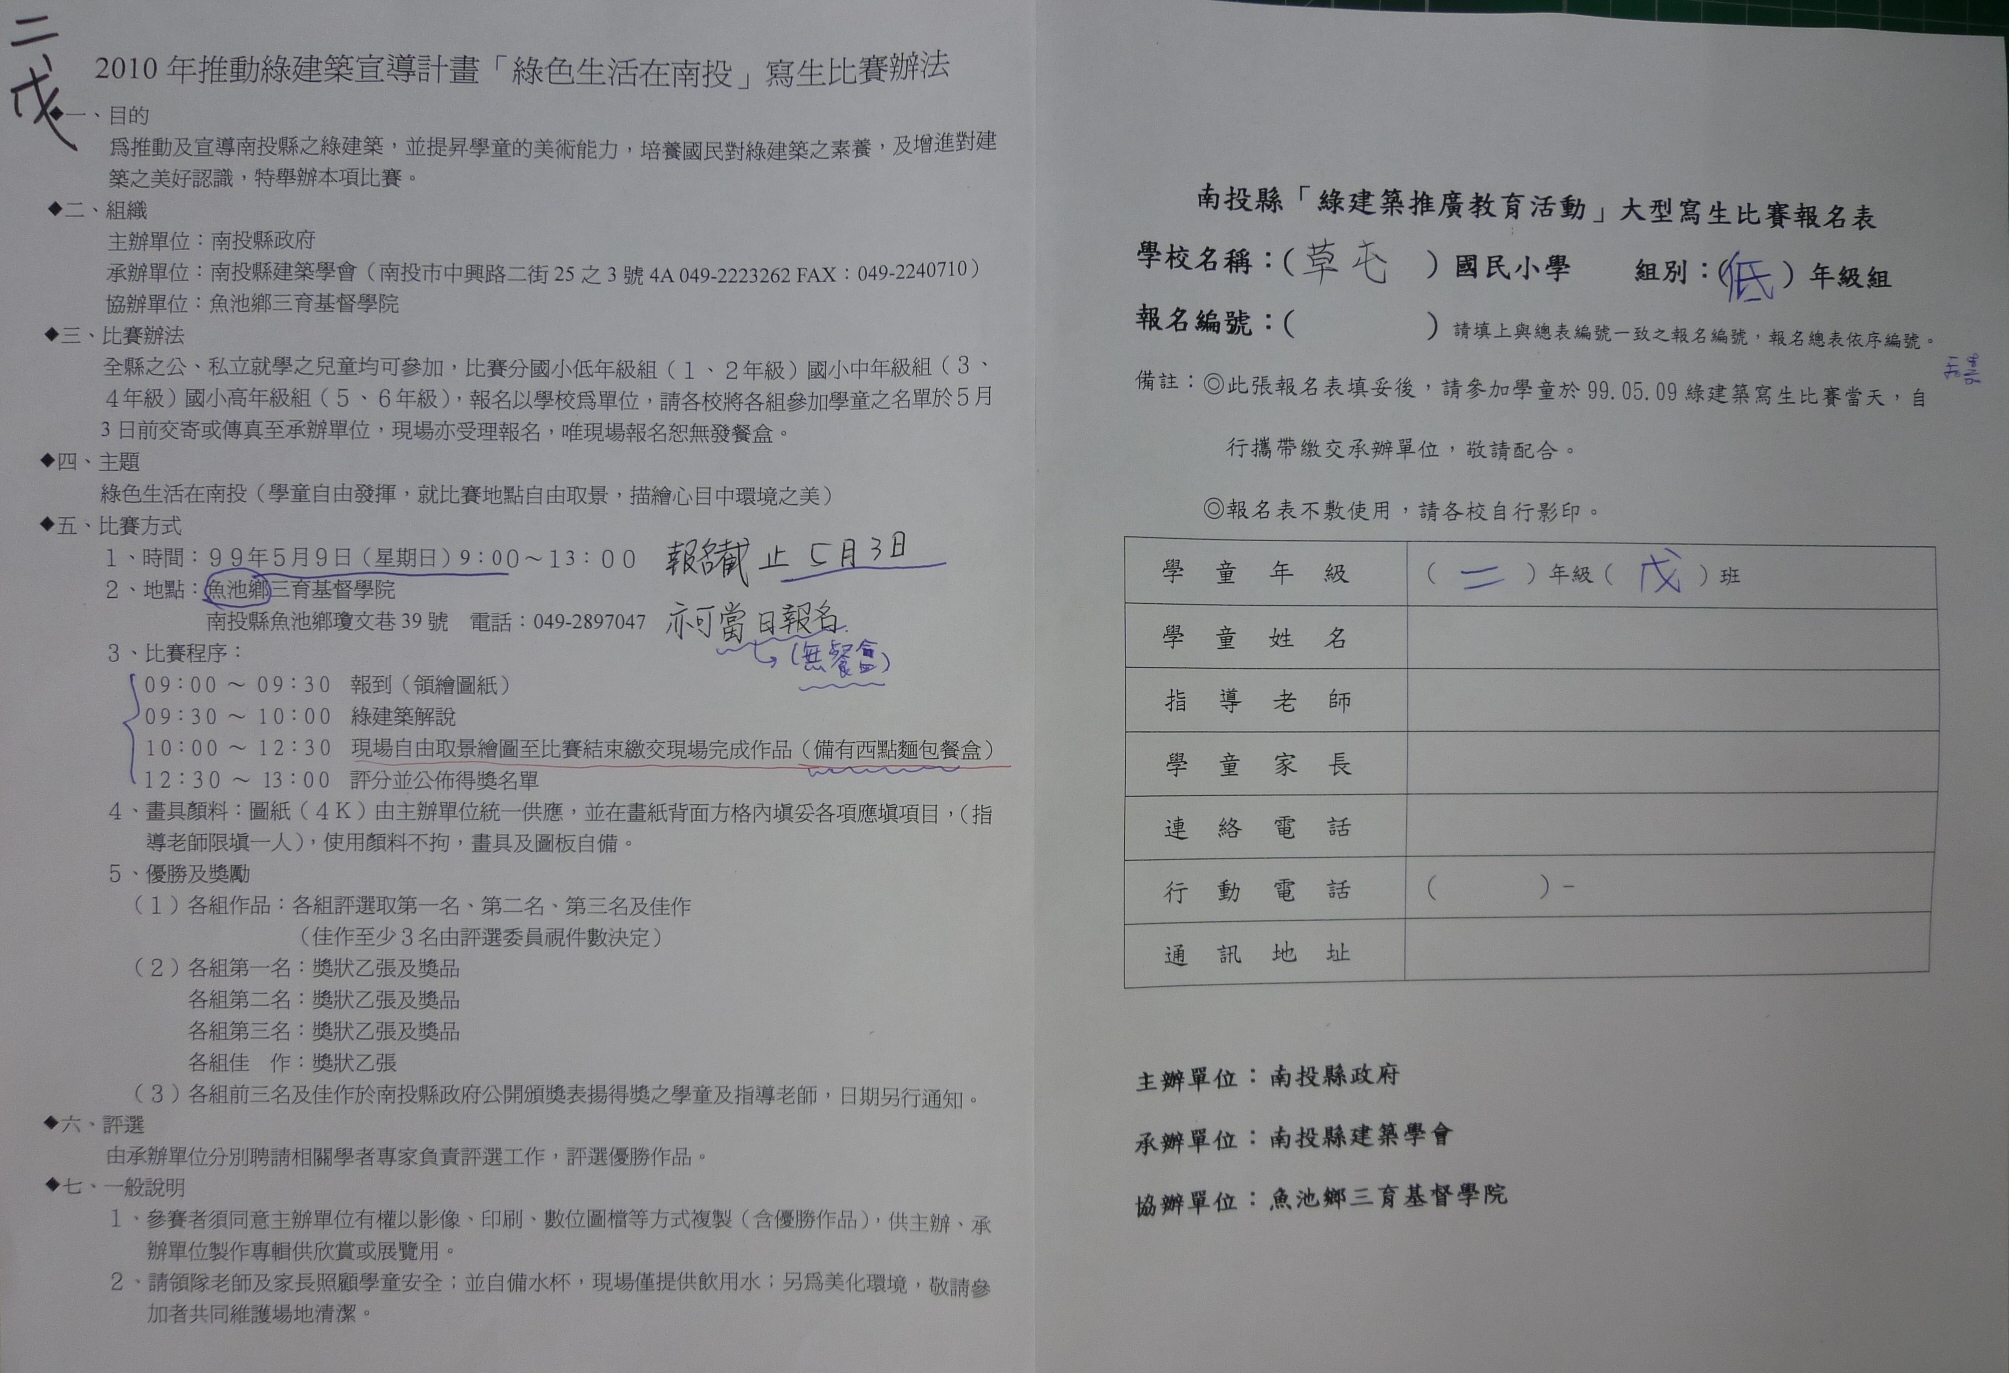 二、戊
2010 年推動綠建築宣導計畫「綠色生活在南投」寫生比賽辦法
◆一、目的
為推動及宣導南投縣之綠建築，並提昇學童的美術能力，培養國民對綠建築之素養，及增進對建
築之美好認識，特舉辦本項比賽。
◆二、組織
主辦單位：南投縣政府
承辦單位：南投縣建築學會（南投市中興路二街 25 之 3 號 4A 049-2223262 FAX：049-2240710）
協辦單位：魚池鄉三育基督學院
◆三、比賽辦法
全縣之公、私立就學之兒童均可參加，比賽分國小低年級組（１、２年級）國小中年級組（３、
４年級）國小高年級組（５、６年級），報名以學校為單位，請各校將各組參加學童之名單於５月
3 日前交寄或傳真至承辦單位，現場亦受理報名，唯現場報名恕無發餐盒。
◆四、主題
綠色生活在南投（學童自由發揮，就比賽地點自由取景，描繪心目中環境之美）
◆五、比賽方式
１、時間：９９年５月９日（星期日）９：００～１３：００ 報名截止 5月3日
２、地點：魚池鄉三育基督學院
南投縣魚池鄉瓊文巷 39 號 電話：049-2897047 亦可當日報名
（無餐盒）
３、比賽程序：
09：00 ～ 09：30 報到（領繪圖紙）
09：30 ～ 10：00 綠建築解說
10：00 ～ 12：30 現場自由取景繪圖至比賽結束繳交現場完成作品（備有西點麵包餐盒）
12：30 ～ 13：00 評分並公佈得獎名單
４、畫具顏料：圖紙（４Ｋ）由主辦單位統一供應，並在畫紙背面方格內填妥各項應填項目，（指
導老師限填一人），使用顏料不拘，畫具及圖板自備。
５、優勝及獎勵
（１）各組作品：各組評選取第一名、第二名、第三名及佳作
（佳作至少３名由評選委員視件數決定）
（２）各組第一名：獎狀乙張及獎品
各組第二名：獎狀乙張及獎品
各組第三名：獎狀乙張及獎品
各組佳　作：獎狀乙張
（３）各組前三名及佳作於南投縣政府公開頒獎表揚得獎之學童及指導老師，日期另行通知。
◆六、評選
由承辦單位分別聘請相關學者專家負責評選工作，評選優勝作品。
◆七、一般說明
１、參賽者須同意主辦單位有權以影像、印刷、數位圖檔等方式複製（含優勝作品），供主辦、承
辦單位製作專輯供欣賞或展覽用。
２、請領隊老師及家長照顧學童安全；並自備水杯，現場僅提供飲用水；另為美化環境，敬請參
加者共同維護場地清潔。
南投縣「綠建築推廣教育活動」大型寫生比賽報名表
學校名稱：（草屯）國民小學 組別：（低）年級組
報名編號：（ ）請填上與總表編號一致之報名編號，報名總表依序編號。
備註：◎此張報名表填妥後，請參加學童於 99.05.09 綠建築寫生比賽當天，自
行攜帶繳交承辦單位，敬請配合。
◎報名表不敷使用，請各校自行影印。
學童年級 （二）年級（戊）班
學童姓名
指導老師
學童家長
連絡電話
行動電話 （ ）-
通訊地址
主辦單位：南投縣政府
承辦單位：南投縣建築學會
協辦單位：魚池鄉三育基督學院